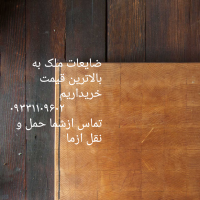 ضایعات ملک به
بالاترین قیمت
خریداریم
۰۹۳۳۱۱۰۹۶۰۲
تماس ازشما حمل و
نقل ازما